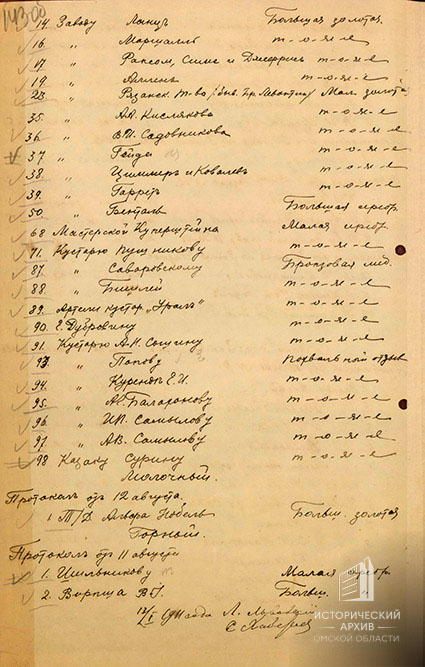 14. Заводу Ланцъ Большая золотая
16. " Маршаллъ т-о-ж-е
17 " Рансом, Симс и Джеффрис т-о-ж-е
19. " т-о-ж-е
23. " Рязанск. т-во /быв. Мал. золота
35. " А.А. Кислякова т-о-ж-е
36. " В.И. Садовникова т-о-ж-е
37. " Гейди т-о-ж-е
38. " Циммеръ и Ковалевъ т-о-ж-е
39. " Гарретъ т-о-ж-е
50. " Бенталь Большая серебр.
68 Мастерской Куперштейна Малая серебр.
71. Кустарю Пушникову т-о-ж-е
87. " Саворовскому Бронзовая мед.
88. " т-о-ж-е
89. Артели кустар. „Уралъ" т-о-ж-е
90. Е. Дубровину т-о-ж-е
91. Кустарю А.Н. т-о-ж-е
93. " Попову Похвальный отзыв
94. " Е.И. т-о-ж-е
95. " т-о-ж-е
96. " И.П. Самылову т-о-ж-е
97. " А.В. Самылову т-о-ж-е
98 Казаку Сурину т-о-ж-е
Молочный.
Протоколъ отъ 12 августа.
1. Т/Д. Нобель Больш. золотая
Горный.
Протоколъ отъ 11 августа
1. Ишльникову Малая серебр.
2. Больш.
ИСТОРИЧЕСКИЙ
АРХИВ
ОМСКОЙ ОБЛАСТИ